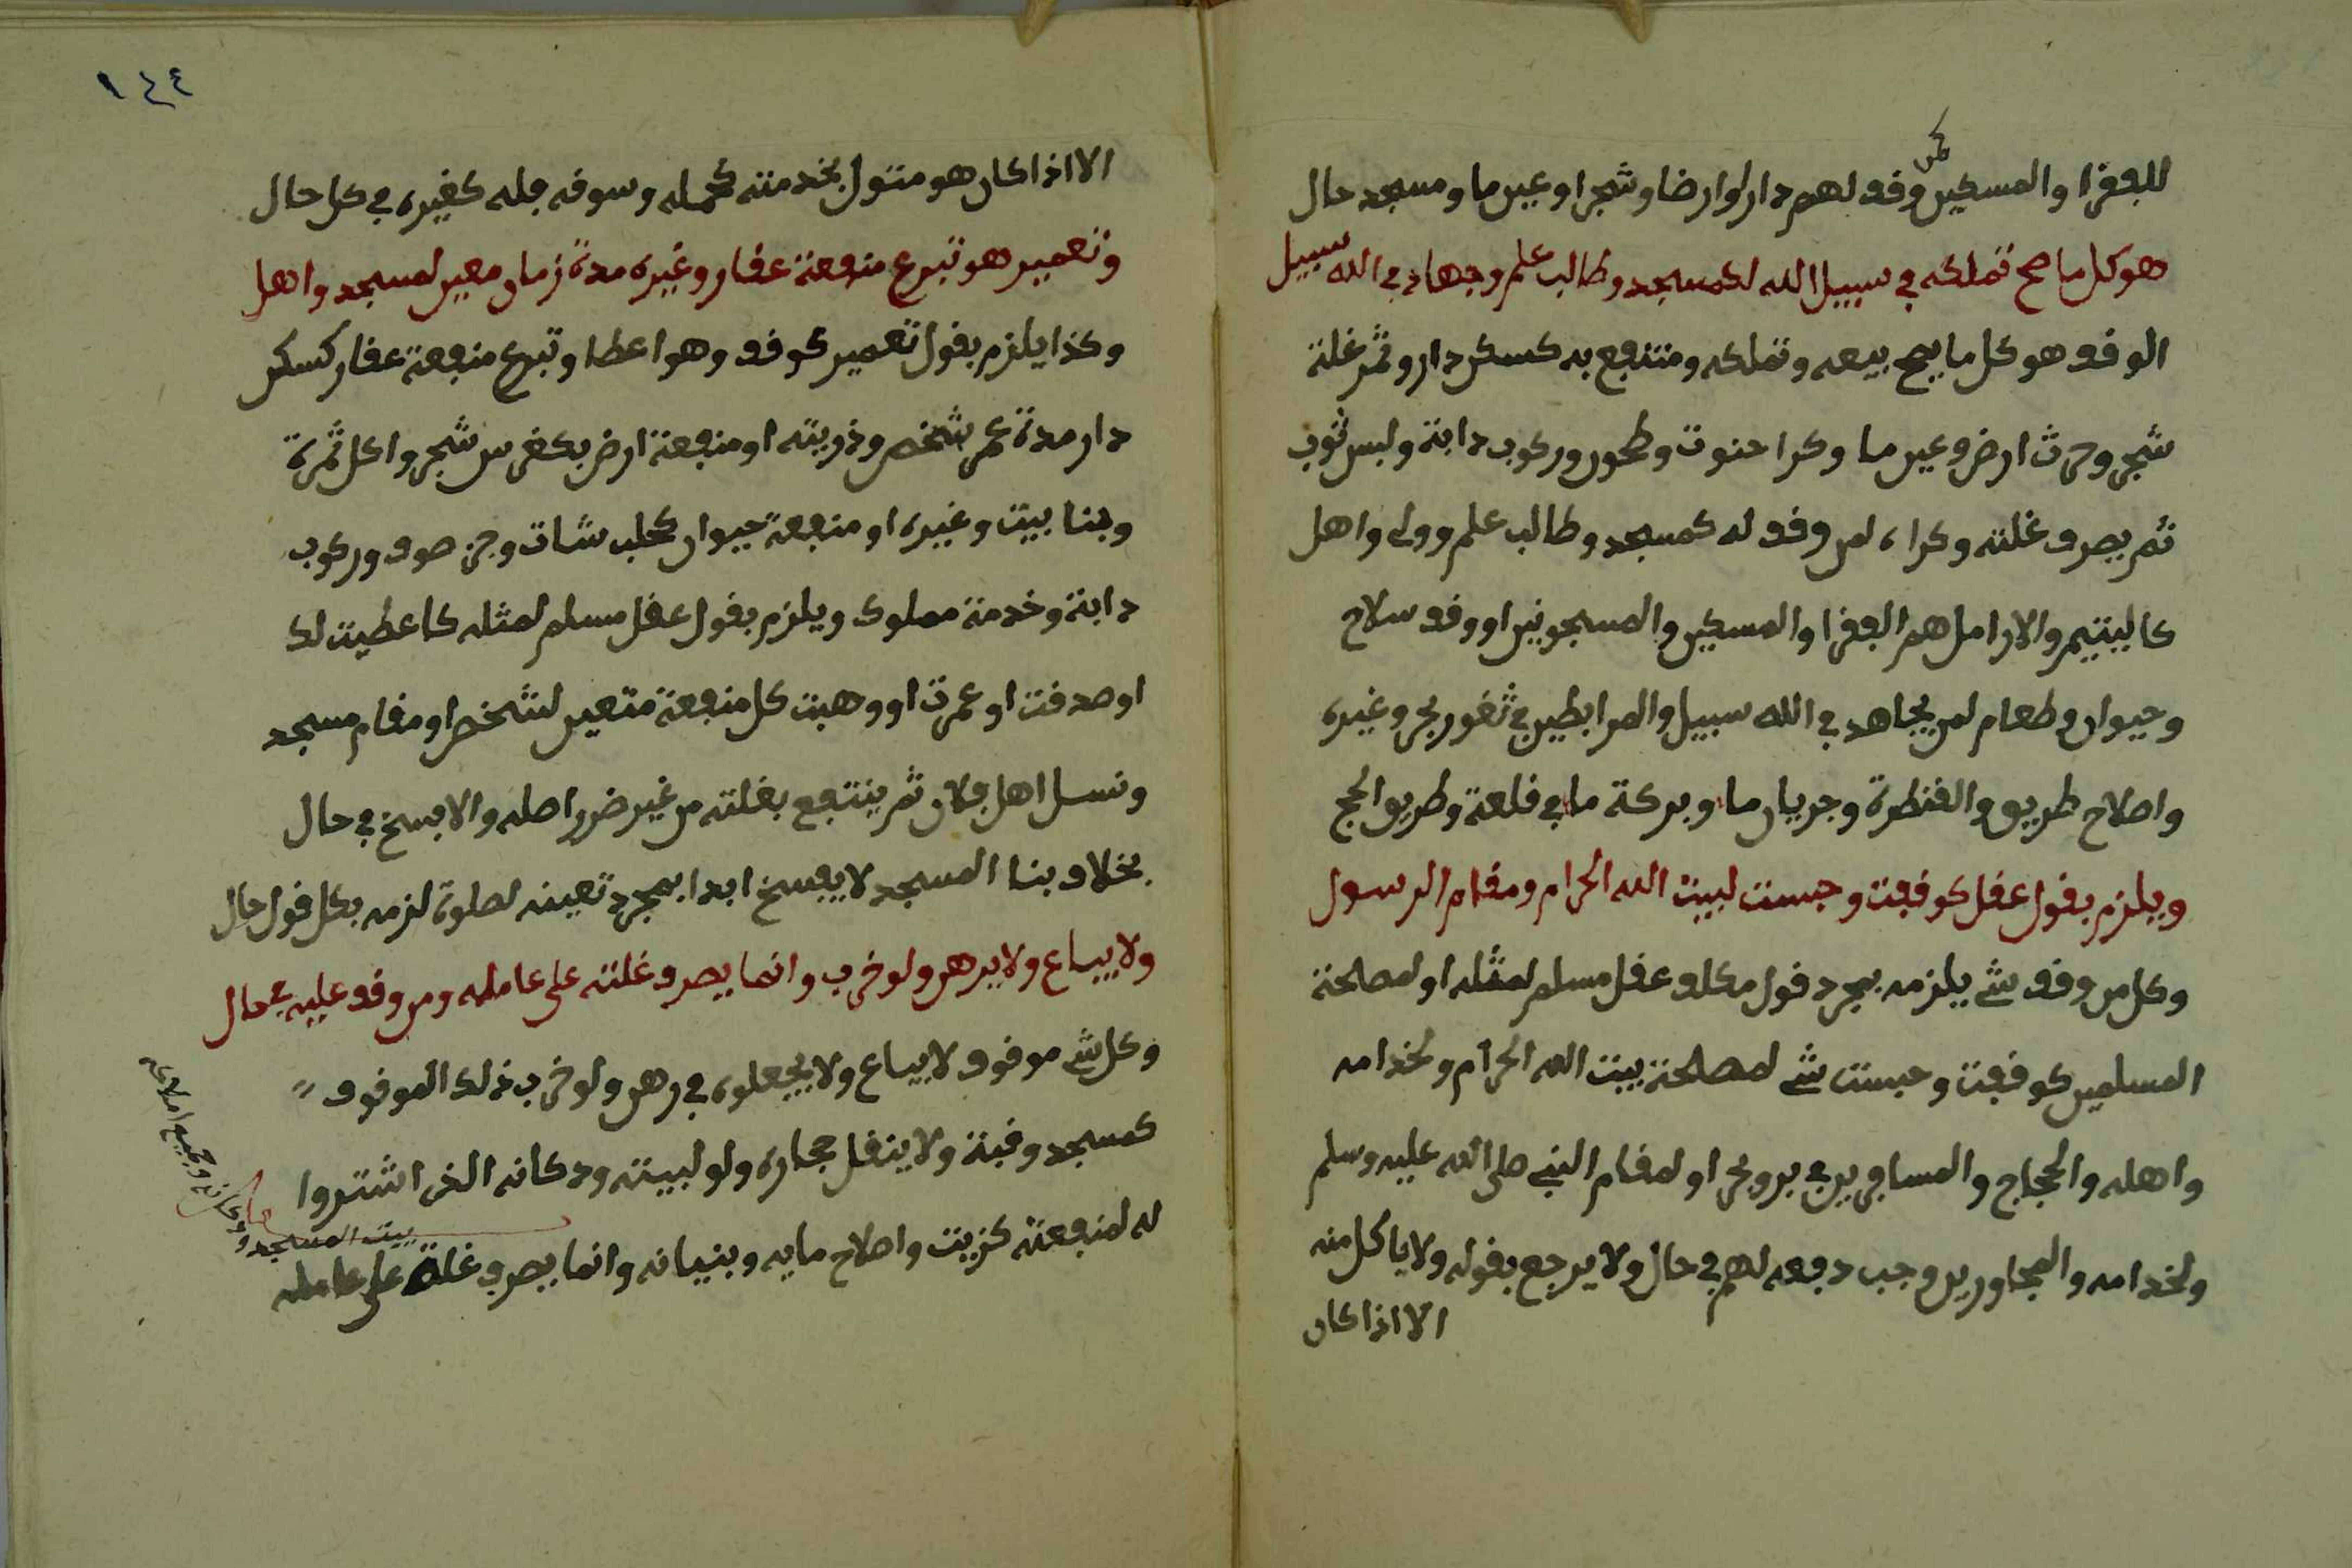 كمن
للفقرا والمسكين وقف لهم دار اوارضا وشجرا وعين ما ومسجد حال
هو كل ما صح تملكه في سبيل الله لكمسجد وطالب علم وجهاد في الله سبيل
الوقف هو كل ما يصح بيعه وتملكه ومنتفع به كسكن دار وثمر غلة
شجر وحرث ارض وعين ما وكرا حنوت وطحون وركوب دابة ولبس ثوب
ثم يصرف غلته وكراء لمن وقف له كمسجد وطالب علم وولى واهل
كاليتيم والارامل هم الفقرا والمسكين والمسجونين او وقف سلاح
وحيوان وطعام لمن يجاهد في الله سبيل والمرابطين في ثغور بحر وغيره
واصلاح طريق والقنطرة وجريان ما وبركة ما في قلعة وطريق الحج
ويلزم بقول عقل كوقفت وحبست لبيت الله الحرام ومقام الرسول
وكل من وقف شي يلزمه بمجرد قول مكلف عقل مسلم لمثله او لمصلحة
المسلمين كوقفت وحبست شي لمصلحة بيت الله الحرام ولخدامه
واهله والحجاج والمسافرين في بر وبحر او لمقام النبي صلى الله عليه وسلم
ولخدامه والمجاورين وجب دفعه لهم في حال ولا يرجع بقوله ولا ياكل منه
الا اذا كان
١٤٤
الا اذا كان هو متول بخدمته كحمله وسوقه فله كغيره في كل حال
وتعمير هو تبرع منفعة عقار وغيره مدة زمان معين لمسجد واهل
وكذا يلزم بقول تعمير كوقف وهو اعطا وتبرع منفعة عقار كسكن
دار مدة عمر شخص وذريته او منفعة ارض بكغرس شجر واكل ثمرة
وبنا بيت وغيره او منفعة حيوان كحلب شات وجز صوف وركوب
دابة وخدمة مملوك ويلزم بقول عقل مسلم لمثله كاعطيت لك
او صدقت او عمرت او وهبت كل منفعة متعين لشخص او مقام مسجد
ونسل اهل فلان ثم ينتفع بغلته من غير ضرر اصله والا يفسخ في حال
بخلاف بنا المسجد لا يفسخ ابدا بمجرد تعينه لصلوة لزمه بكل قول حال
ولا يباع ولا يرهن ولو خرب وانما يصرف غلته على عامله ومن وقف عليه في حال
وكل شي موقوف لا يباع ولا يجعلوه في رهن ولو خرب ذلك الموقوف
كمسجد وقبة ولا ينقل حجاره ولو لبيته ودكانه الذى اشتروا
له لمنفعته كزيت واصلاح مايه وبنيانه وانما يصرف غلة على عامله
بيت المسجد ودكانه وجميع املاكه